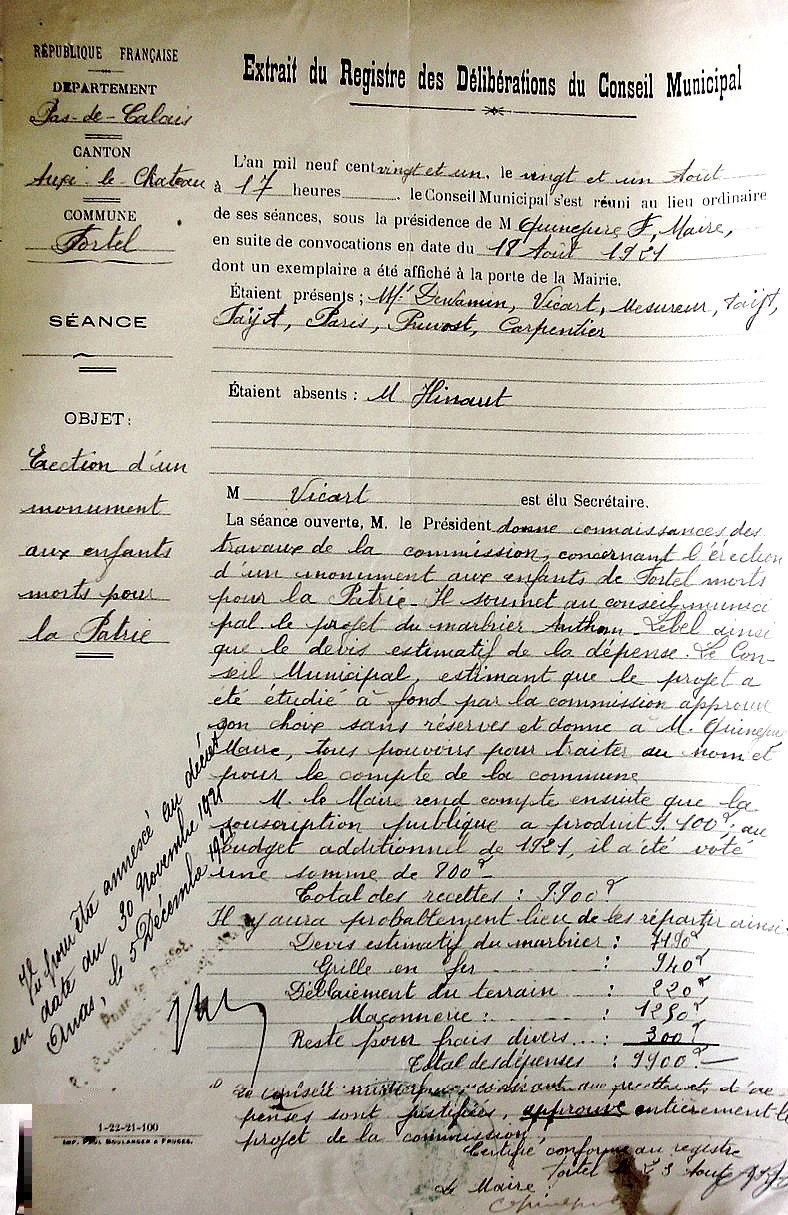 RÉPUBLIQUE FRANÇAISE
DÉPARTEMENT
Pas-de-Calais
CANTON
Auxi-le-Chateau
COMMUNE
Fortel
SÉANCE
OBJET:
Erection d'un
monument
aux enfants
morts pour
la Patrie
Extrait du Registre des Délibérations du Conseil Municipal
L'an mil neuf cent vingt et un, le vingt et un Août
à 17 heures, le Conseil Municipal s'est réuni au lieu ordinaire
de ses séances, sous la présidence de M Quinepure F, Maire,
en suite de convocations en date du 18 Août 1921
dont un exemplaire a été affiché à la porte de la Mairie.
Étaient présents ; Mrs Dewamin, Vicart, Mesureur,
Paris, Pruvost, Carpentier
Étaient absents : M Hinaut
M Vicart est élu Secrétaire.
La séance ouverte, M. le Président donne connaissances des
travaux de la commission, concernant l'érection
d'un monument aux enfants de Fortel morts
pour la Patrie. Il soumet au conseil munici
pal le projet du marbrier Lebel ainsi
que le devis estimatif de la dépense. Le Con-
seil Municipal, estimant que le projet a
été étudié à fond par la commission approuve
son choix sans réserves et donne à M. Quinepure
Maire, tous pouvoirs pour traiter au nom et
pour le compte de la commune
M. le Maire rend compte ensuite que la
souscription publique a produit 9.100f; au
budget additionnel de 1921, il a été voté
une somme de 800f
Total des recettes : 9900f
Il y aura probablement lieu de les répartir ainsi.
Devis estimatif du marbrier : 7190f
Grille en fer : 940f
Déblaiement du terrain : 220f
Maçonnerie : : 1250f
Reste pour frais divers : 300f
Total des dépenses : 9900f
Le conseil municipal considérant que recettes et dé
penses sont justifiées, approuve entièrement le
projet de la commission,
Certifié conforme au registre
Fortel le 23 Août
Le Maire
Vu pour être annexé au décret
en date du 30 novembre 1921
Arras, le 5 Décembre 1921
Pour le Préfet,
1-22-21-100
IMP. PAUL BOULANGER A FRUGES.